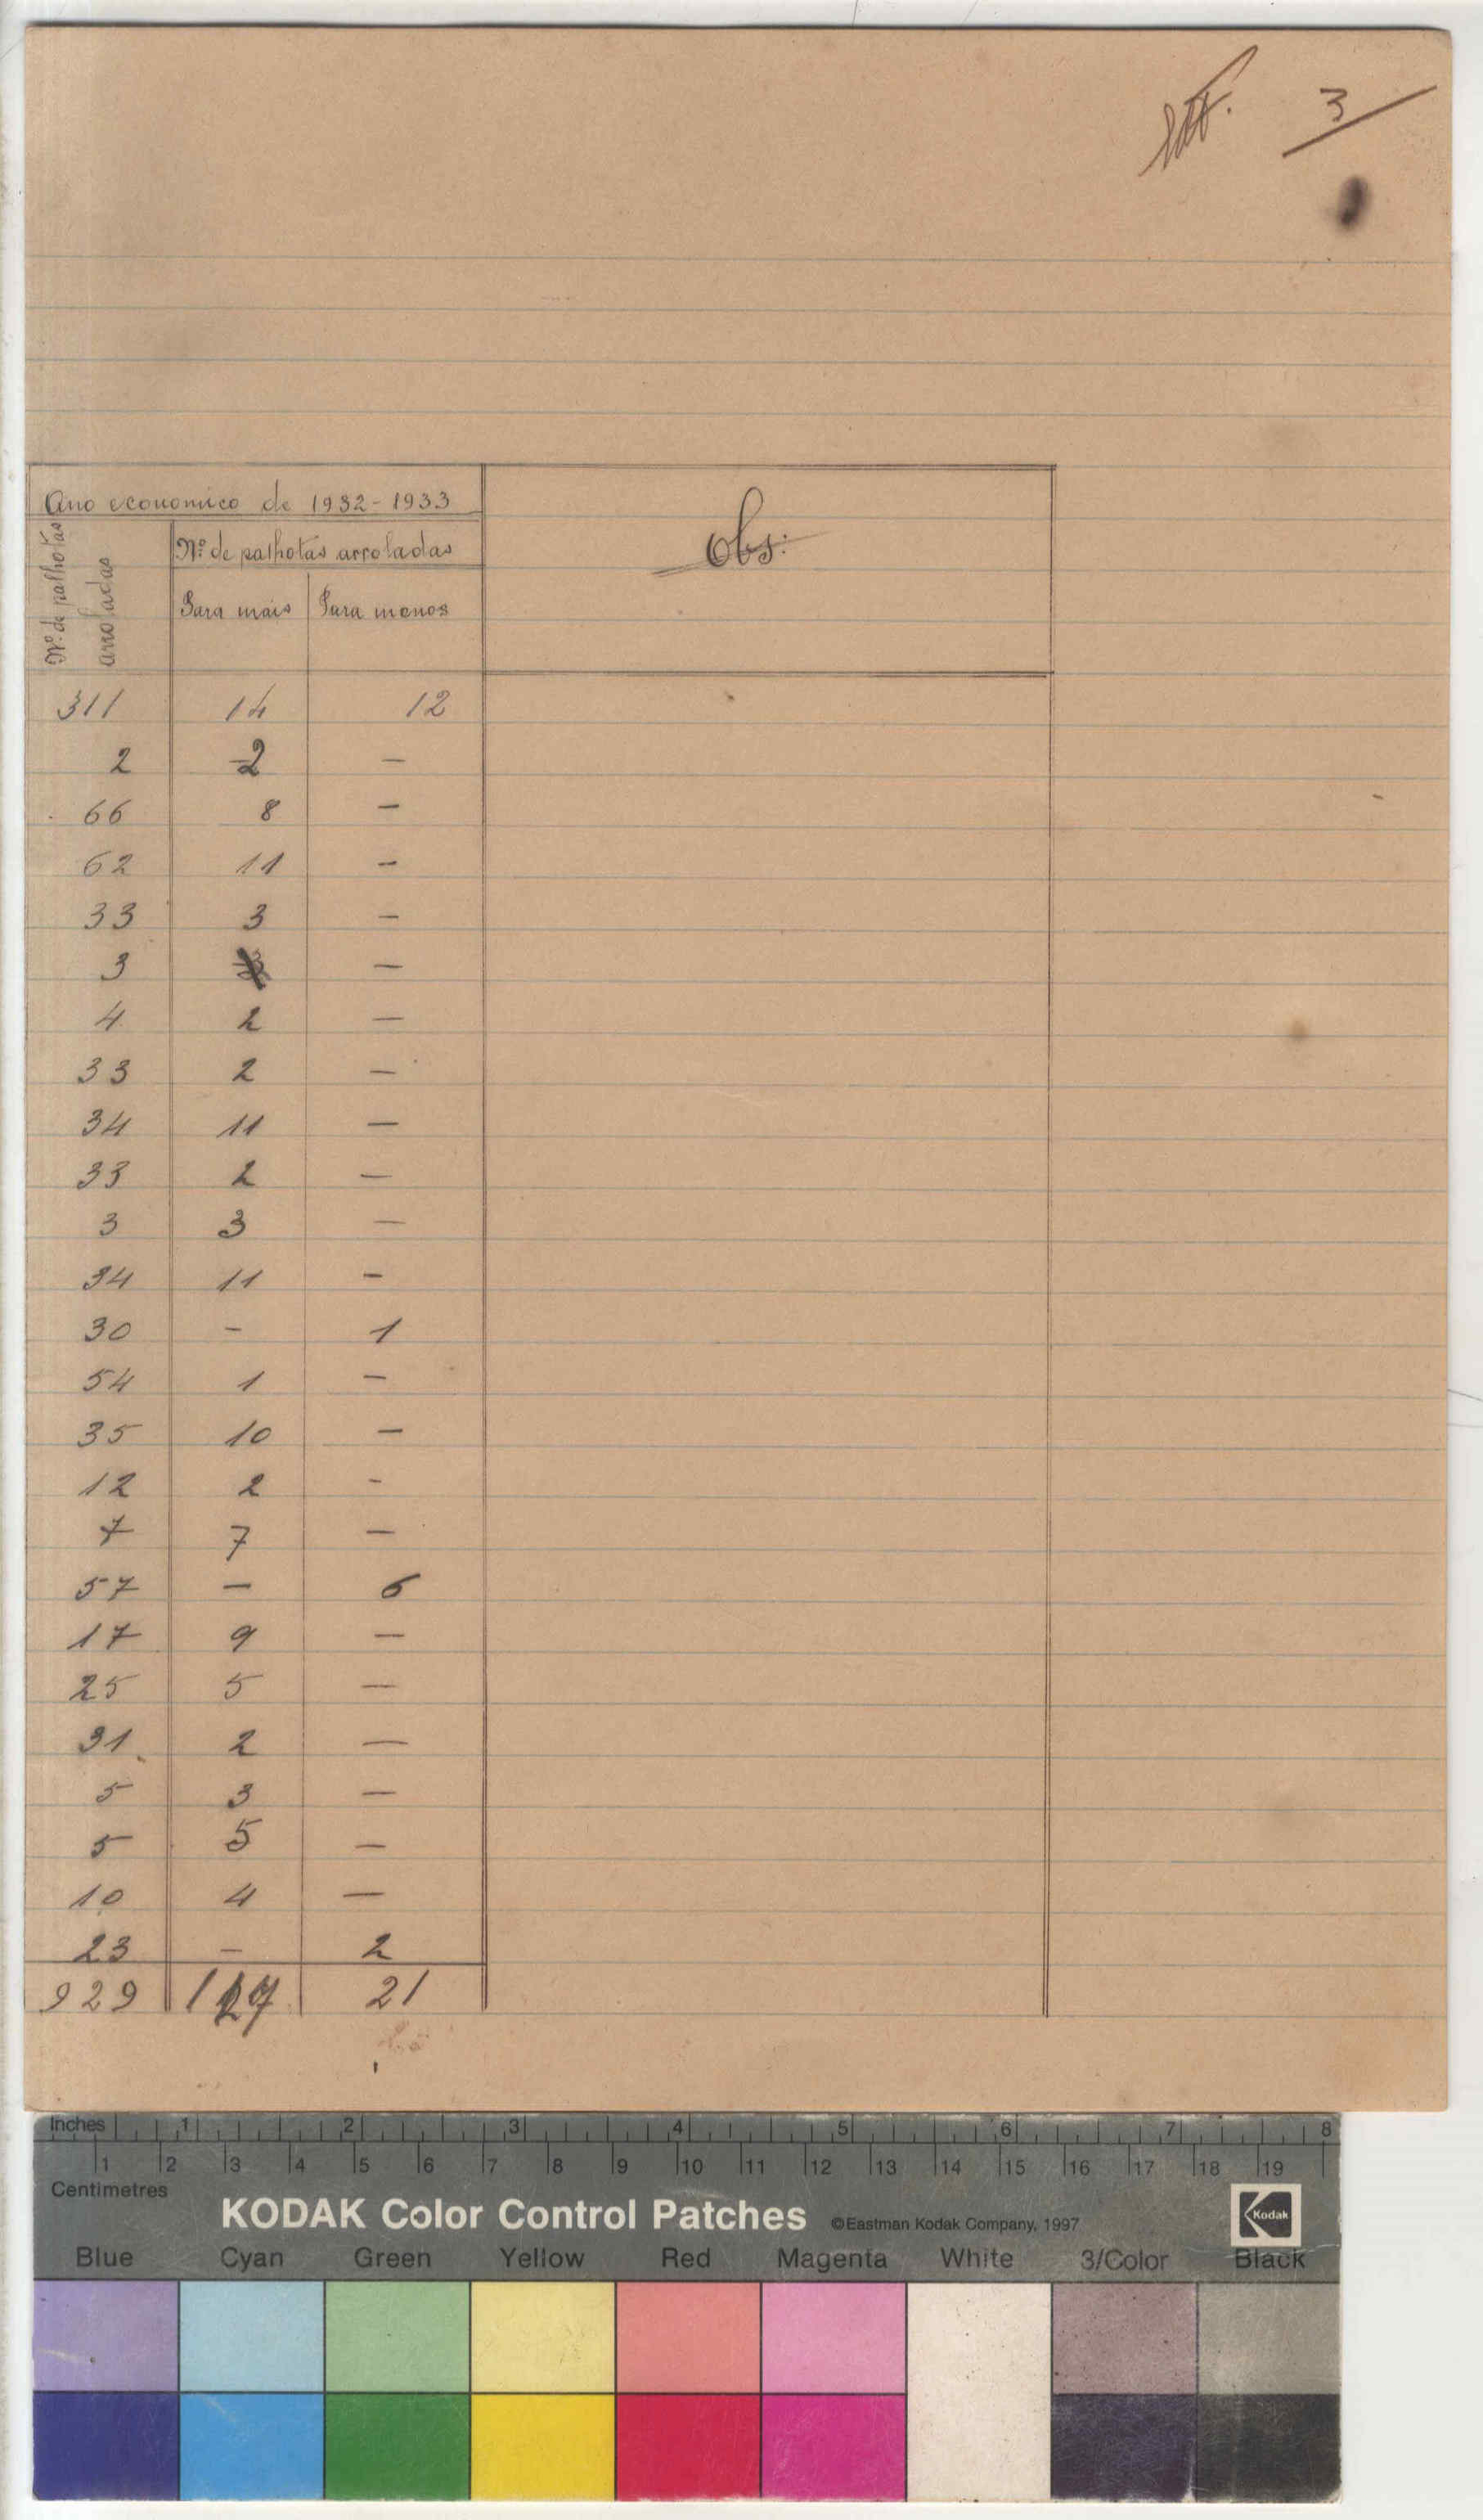 3
Ano economico de 1932-1933
Nº de palhotas arroladas
Nº de palhotas arroladas
Para mais Para menos
Obs:
311 14 12
2 2 —
66 8 —
62 11 —
33 3 —
3 —
4 2 —
33 2 —
34 11 —
33 2 —
3 3 —
34 11 —
30 - 1
54 1 —
35 10 —
12 2 -
7 7 —
57 — 6
17 9 —
25 5 —
31 2 —
5 3 —
5 5 —
10 4 —
23 — 2
929 127 21
Inches 1 2 3 4 5 6 7 8
1 2 3 4 5 6 7 8 9 10 11 12 13 14 15 16 17 18 19
Centimetres
KODAK Color Control Patches ©Eastman Kodak Company, 1997 Kodak
Blue Cyan Green Yellow Red Magenta White 3/Color Black